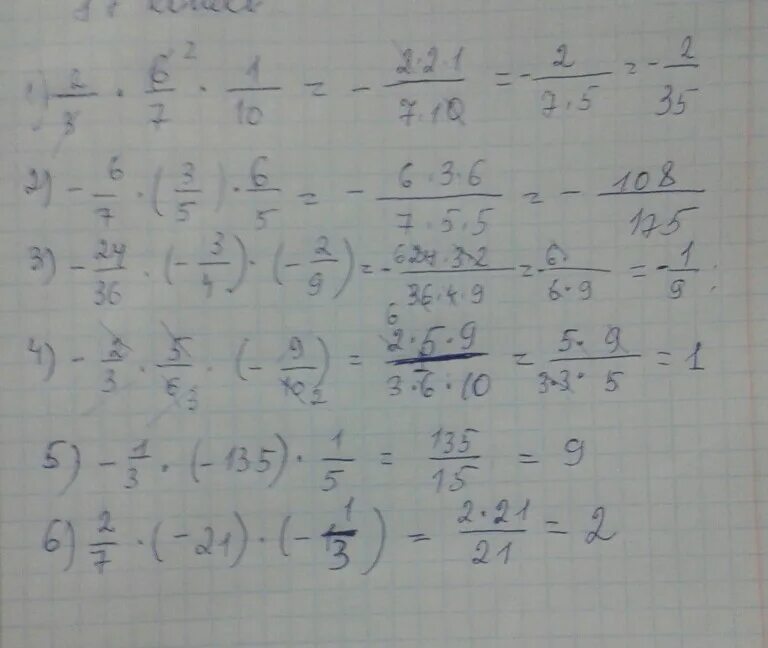 1) 2/3 · 6/7 · 1/10 = - 2·2·1/7·10 = - 2/7·5 = - 2/35
2) - 6/7 · (3/5) · 6/5 = - 6·3·6/7·5·5 = - 108/175
3) - 24/36 · (- 3/4) · (- 2/9) = - 24·3·2/36·4·9 = 6·/6·9 = - 1/9
4) - 2/3 · 5/6 · (- 9/10) = 2·5·9/3·6·10 = 5·9/3·3·5 = 1
5) - 1/3 · (-135) · 1/5 = 135/15 = 9
6) 2/7 · (-21) · (- 1/3) = 2·21/21 = 2